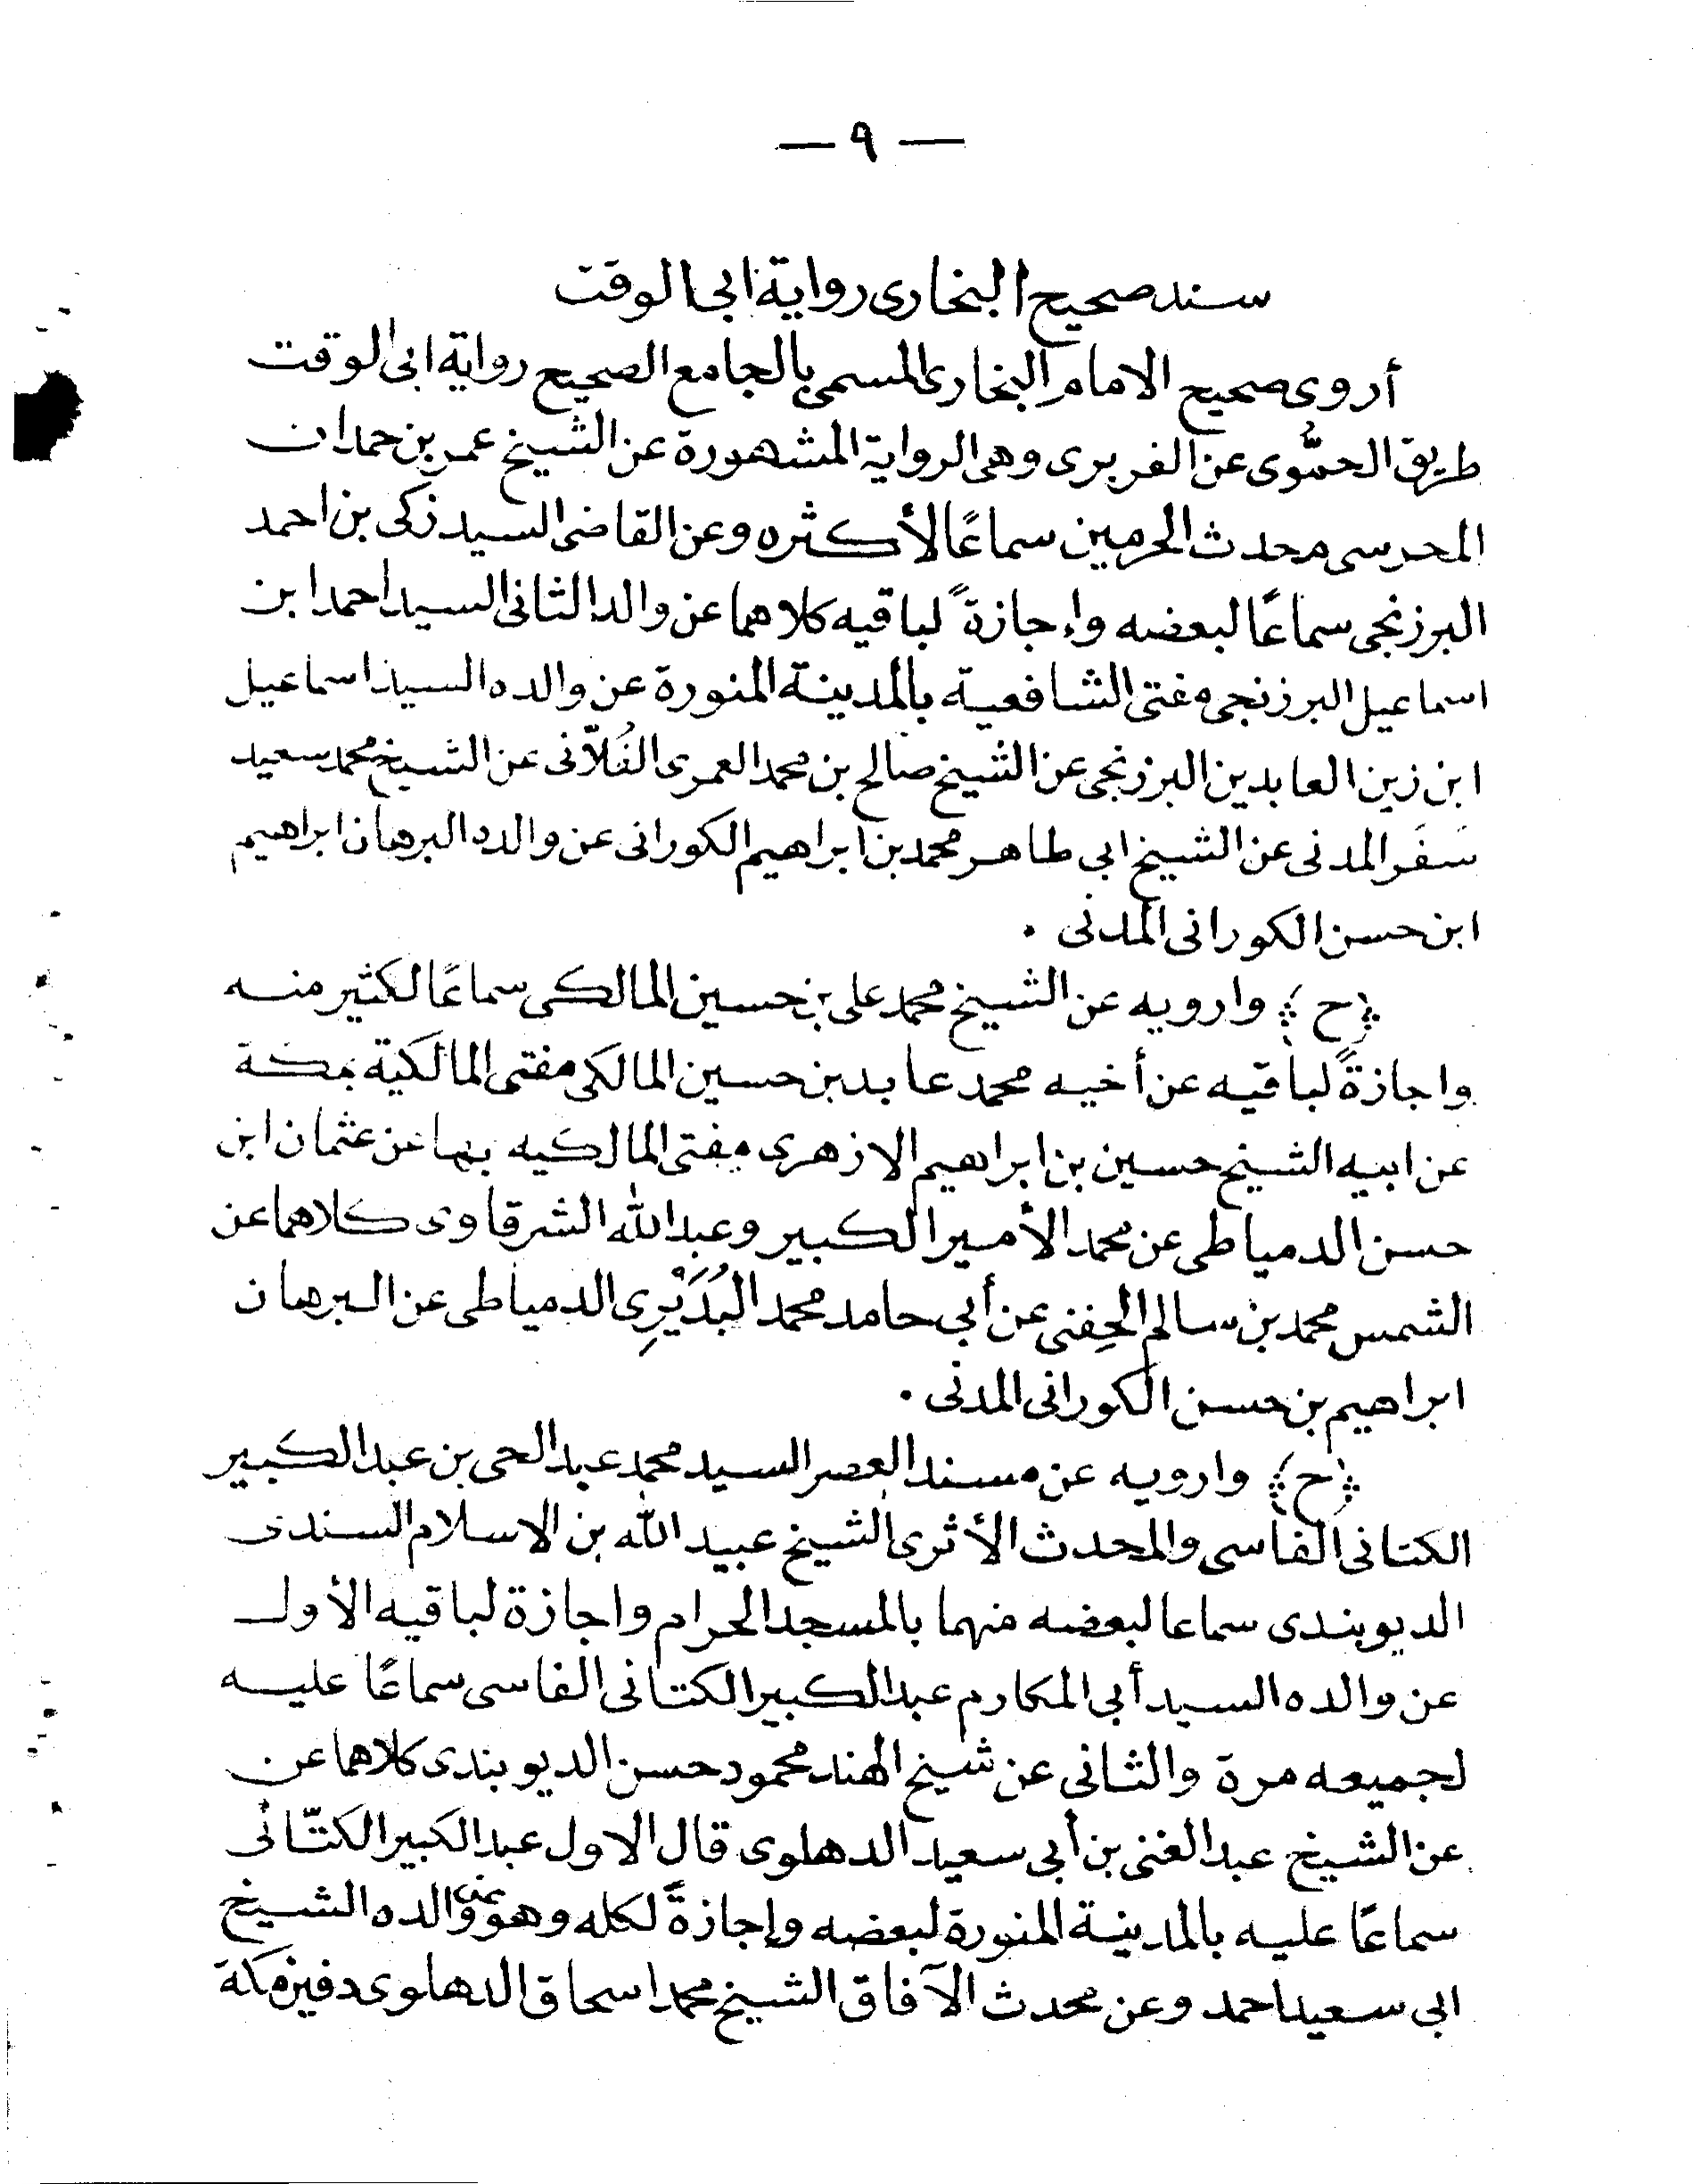 — ٩ —
سند صحيح البخارى رواية ابى الوقت
أروى صحيح الامام البخارى المسمى بالجامع الصحيح رواية ابى الوقت
طريق الحمُّوى عن الفربرى وهى الرواية المشهورة عن الشيخ عمر بن حمدان
المحرسى محدث الحرمين سماعًا لأكثره وعن القاضى السيد زكى بن احمد
البرزنجى سماعًا لبعضه وإجازةً لباقيه كلاهما عن والد الثانى السيد احمد ابن
اسماعيل البرزنجى مفتى الشافعية بالمدينة المنورة عن والده السيد اسماعيل
ابن زين العابدين البرزنجى عن الشيخ صالح بن محمد العمرى الفُلاّنى عن الشيخ محمد سعيد
سَفَر المدنى عن الشيخ ابى طاهر محمد بن ابراهيم الكورانى عن والده البرهان ابراهيم
ابن حسن الكورانى المدنى .
﴿ح﴾ وارويه عن الشيخ محمد على بن حسين المالكى سماعًا لكثير منه
واجازةً لباقيه عن أخيه محمد عابد بن حسين المالكى مفتى المالكية بمكة
عن ابيه الشيخ حسين بن ابراهيم الازهرى مفتى المالكيه بها عن عثمان ابن
حسن الدمياطى عن محمد الأمير الكبير وعبد الله الشرقاوى كلاهما عن
الشمس محمد بن سالم الحِفنى عن أبى حامد محمد البُدَيْرِى الدمياطى عن البرهان
ابراهيم بن حسن الكورانى المدنى .
﴿ح﴾ وارويه عن مسند العصر السيد محمد عبد الحى بن عبد الكبير
الكتانى الفاسى والمحدث الأثرى الشيخ عبيد الله بن الاسلام السندى
الديوبندى سماعا لبعضه منهما بالمسجد الحرام واجازة لباقيه الأول
عن والده السيد أبى المكارم عبد الكبير الكتانى الفاسى سماعًا عليه
لجميعه مرة والثانى عن شيخ الهند محمود حسن الديوبندى كلاهما عن
عن الشيخ عبد الغنى بن أبى سعيد الدهلوى قال الاول عبد الكبير الكتّانى
سماعًا عليه بالمدينة المنورة لبعضه وإجازةً لكله وهو عن والده الشيخ
ابى سعيد احمد وعن محدث الآفاق الشيخ محمد اسحاق الدهلوى دفين مكة